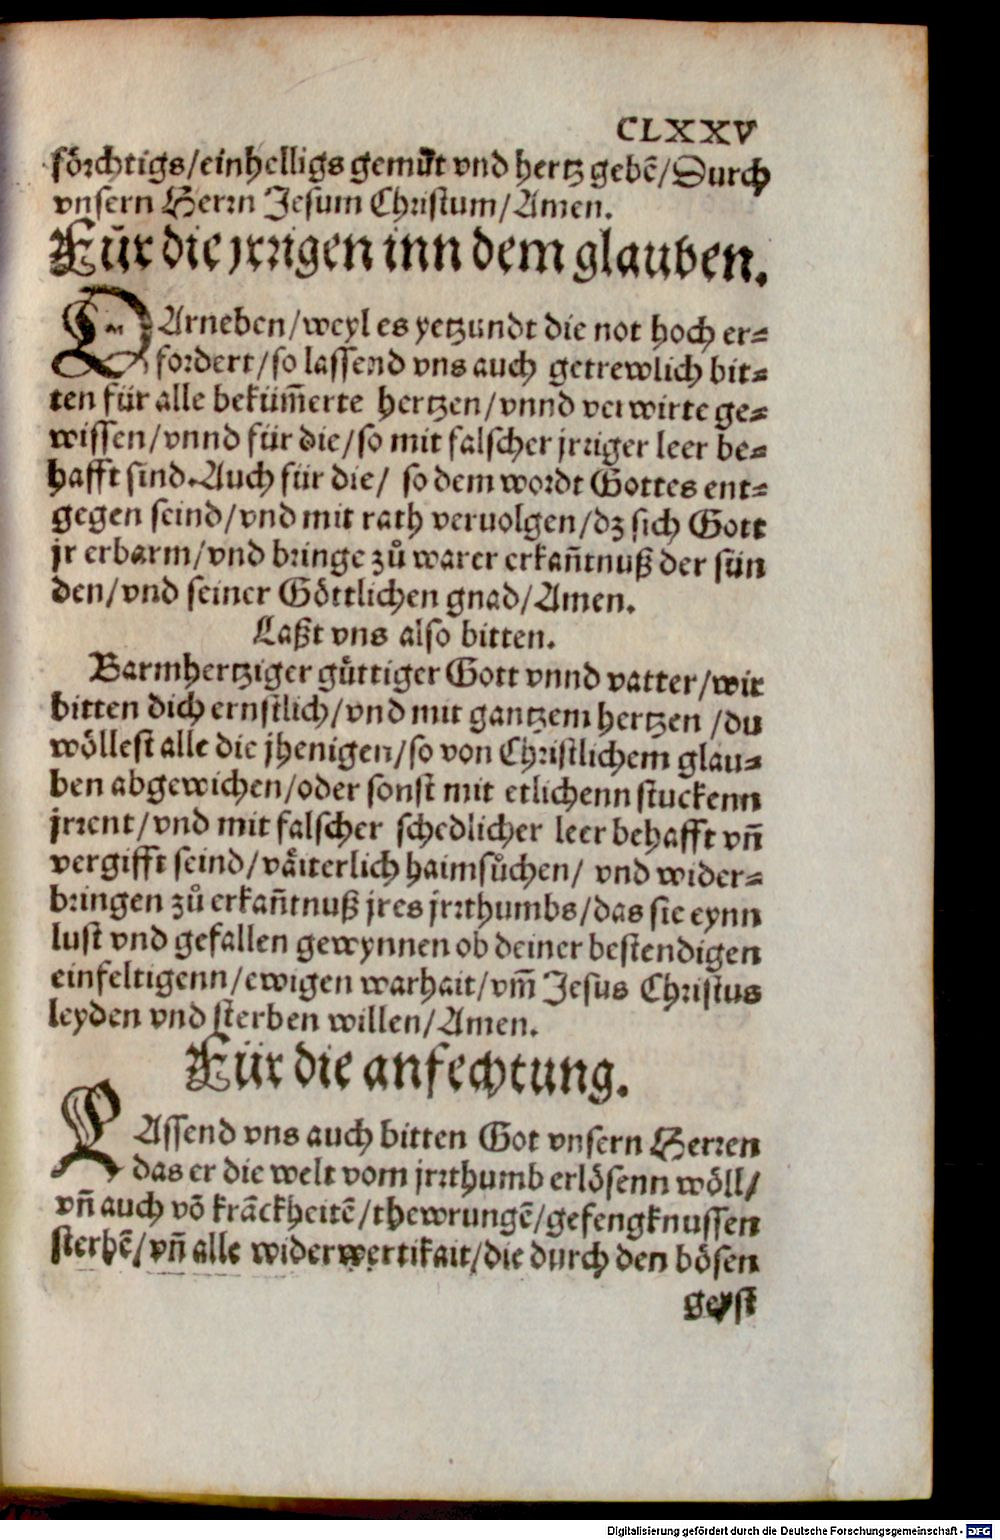 CLXXV
förchtigs/einhelligs gemüt vnd hertz gebē/Durch
vnsern Herrn Jesum Christum/Amen.
Für die jrrigen inn dem glauben.
DArneben/weyl es yetzundt die not hoch er=
fordert/so lassend vns auch getrewlich bit=
ten für alle beküm̄erte hertzen/vnnd verwirte ge=
wissen/vnnd für die/so mit falscher jrriger leer be=
hafft sind. Auch für die/ so dem wordt Gottes ent=
gegen seind/vnd mit rath veruolgen/dz sich Gott
jr erbarm/vnd bringe zů warer erkañtnuß der sün
den/vnd seiner Göttlichen gnad/Amen.
Laßt vns also bitten.
Barmhertziger gůttiger Gott vnnd vatter/wir
bitten dich ernstlich/vnd mit gantzem hertzen /du
wöllest alle die jhenigen/so von Christlichem glau=
ben abgewichen/oder sonst mit etlichenn stuckenn
jrrent/vnd mit falscher schedlicher leer behafft vñ
vergifft seind/väiterlich haimsůchen/ vnd wider=
bringen zů erkañtnuß jres jrrthumbs/das sie eynn
lust vnd gefallen gewynnen ob deiner bestendigen
einfeltigenn/ewigen warhait/vm̄ Jesus Christus
leyden vnd sterben willen/Amen.
Für die anfechtung.
LAssend vns auch bitten Got vnsern Herren
das er die welt vom jrrthumb erlösenn wöll/
vñ auch vō krāckheitē/thewrungē/gefengknussen
sterbē/vñ alle widerwertikait/die durch den bösen
geyst
Digitalisierung gefördert durch die Deutsche Forschungsgemeinschaft - DFG